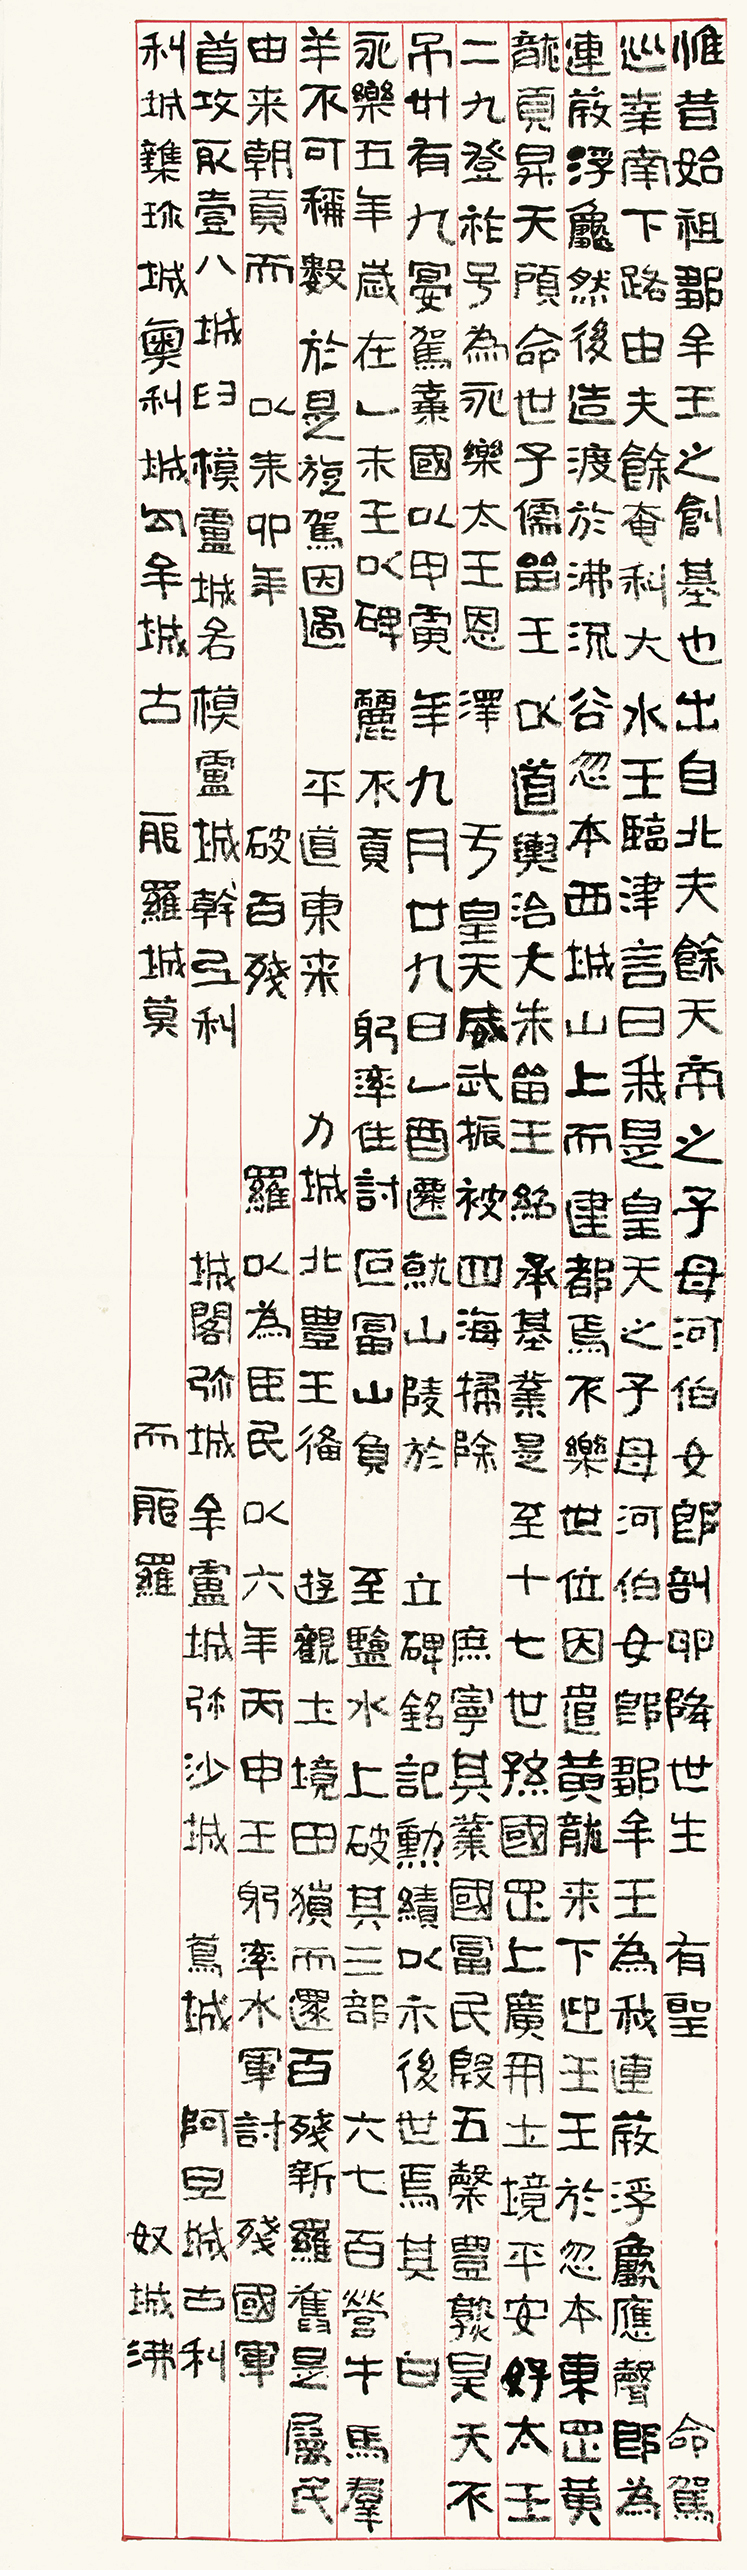 惟昔始祖鄒牟王之創基也出自北夫餘天帝之子母河伯女郎剖卵降世生 有聖 命駕
巡幸南下路由夫餘奄利大水王臨津言曰我是皇天之子母河伯女郎鄒牟王為我連葭浮龜應聲即為
連葭浮龜然後造渡於沸流谷忽本西城山上而建都焉不樂世位因遣黃龍来下迎王王於忽本東罡黃
龍頁昇天顧命世子儒留王以道輿治大朱留王紹承基業是至十七世孫國罡上廣開土境平安好太王
二九登祚号為永樂太王恩澤 于皇天威武振被四海掃除 庶寧其業國富民殷五穀豊熟昊天不
吊卅有九宴駕棄國以甲寅年九月廿九日乙酉遷就山陵於 立碑銘記勳績以示後世焉其 曰
永樂五年歲在乙未王以碑麗不貢 躬率住討叵富山負 至鹽水上破其三部 六七百營牛馬羣
羊不可稱數於是旋駕因過 平道東来 力城北豊王備 遊觀土境田獵而還百殘新羅舊是屬民
由来朝貢而 以耒卯年 破百殘 羅以為臣民以六年丙申王躬率水軍討 殘國軍
首攻取壹八城臼模盧城名模盧城幹弓利 城閣弥城 牟盧城弥沙城 蔦城 阿旦城古利
利城雜珍城奧利城勾牟城古 耶羅城莫 而耶羅 奴城沸